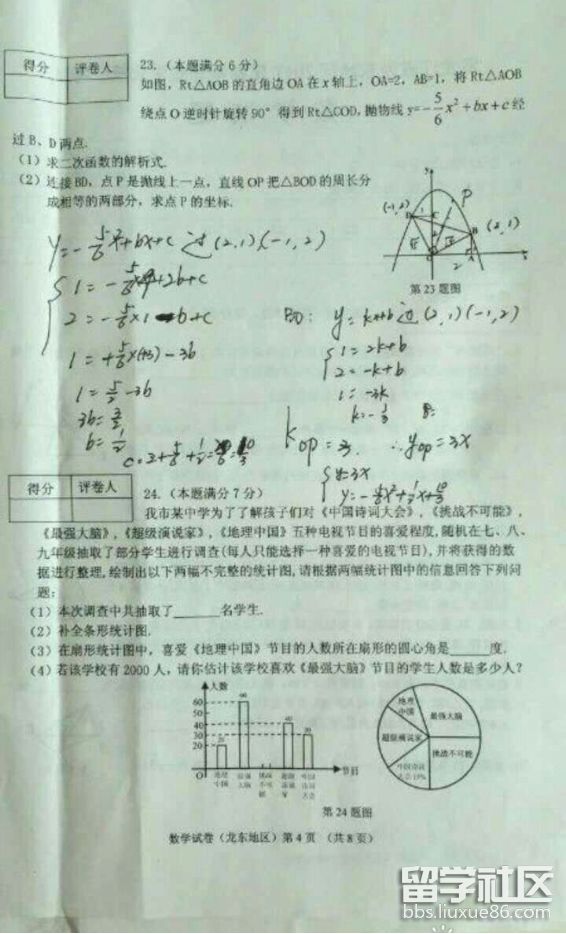 得分 评卷人
23.（本题满分6分）
如图，Rt△AOB的直角边OA在x轴上，OA=2，AB=1，将Rt△AOB
绕点O逆时针旋转90°得到Rt△COD，抛物线y=-5/6x²+bx+c经
过B、D两点.
（1）求二次函数的解析式.
（2）连接BD，点P是抛线上一点，直线OP把△BOD的周长分
成相等的两部分，求点P的坐标.
(-1,2)
P
(2,1)
B
A
2
第23题图
y=-5/6x²+bx+c 过(2,1)(-1,2)
2=-5/6×1-b+c
1=+5/6×(+3)-3b
1=5/2-3b
3b=3/2
b=1/2
c=2+5/6+1/2
BD: y=kx+b过(2,1)(-1,2)
1=2k+b
2=-k+b
1=-3k
k=-1/3
k op=3 ∴y op=3x
y=3x
y=-5/6x²+1/2x+10/3
得分 评卷人
24.（本题满分7分）
我市某中学为了了解孩子们对《中国诗词大会》，《挑战不可能》，
《最强大脑》，《超级演说家》，《地理中国》五种电视节目的喜爱程度，随机在七、八、
九年级抽取了部分学生进行调查(每人只能选择一种喜爱的电视节目)，并将获得的数
据进行整理，绘制出以下两幅不完整的统计图，请根据两幅统计图中的信息回答下列问
题：
（1）本次调查中共抽取了______名学生.
（2）补全条形统计图.
（3）在扇形统计图中，喜爱《地理中国》节目的人数所在扇形的圆心角是_____度.
（4）若该学校有2000人，请你估计该学校喜欢《最强大脑》节目的学生人数是多少人？
人数
60
50
40
30
20
10
O
20
60
40
30
地理中国
节目
地理中国
最强大脑
超级演说家
挑战不可能
中国诗词大会15%
第24题图
数学试卷（龙东地区）第4页 （共8页）
留学社区
bbs.liuxue86.com